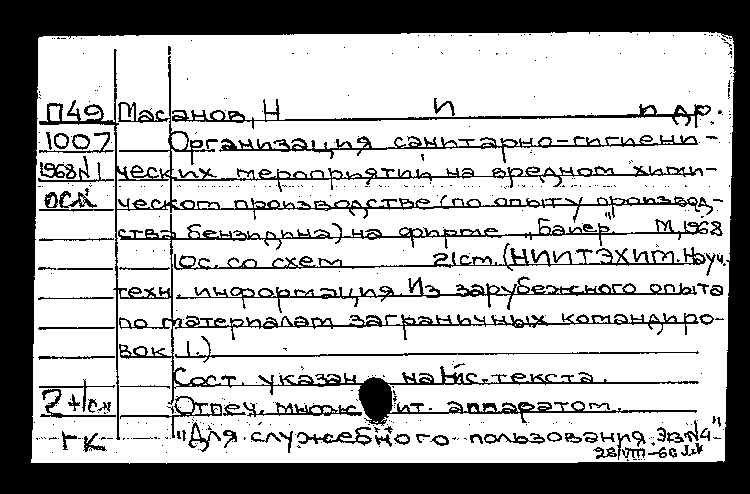 П49 Масанов, Н И и др.
1007 Организация санитарно-гигиени-
1968 N1 ческих мероприятий на вредном хими-
ОСЛ ческом производстве (по опыту производ-
ства бензидина) на фирме „Байер" М, 1968
10с. со схем 21см. (НИИТЭХИМ. Науч.
техн. информация. Из зарубежного опыта
по материалам заграничных командиро-
вок 1.)
Сост. указан на тексте.
2 Отпеч. множ ит. аппаратом.
ГК "Для служебного пользования. Экз N4"